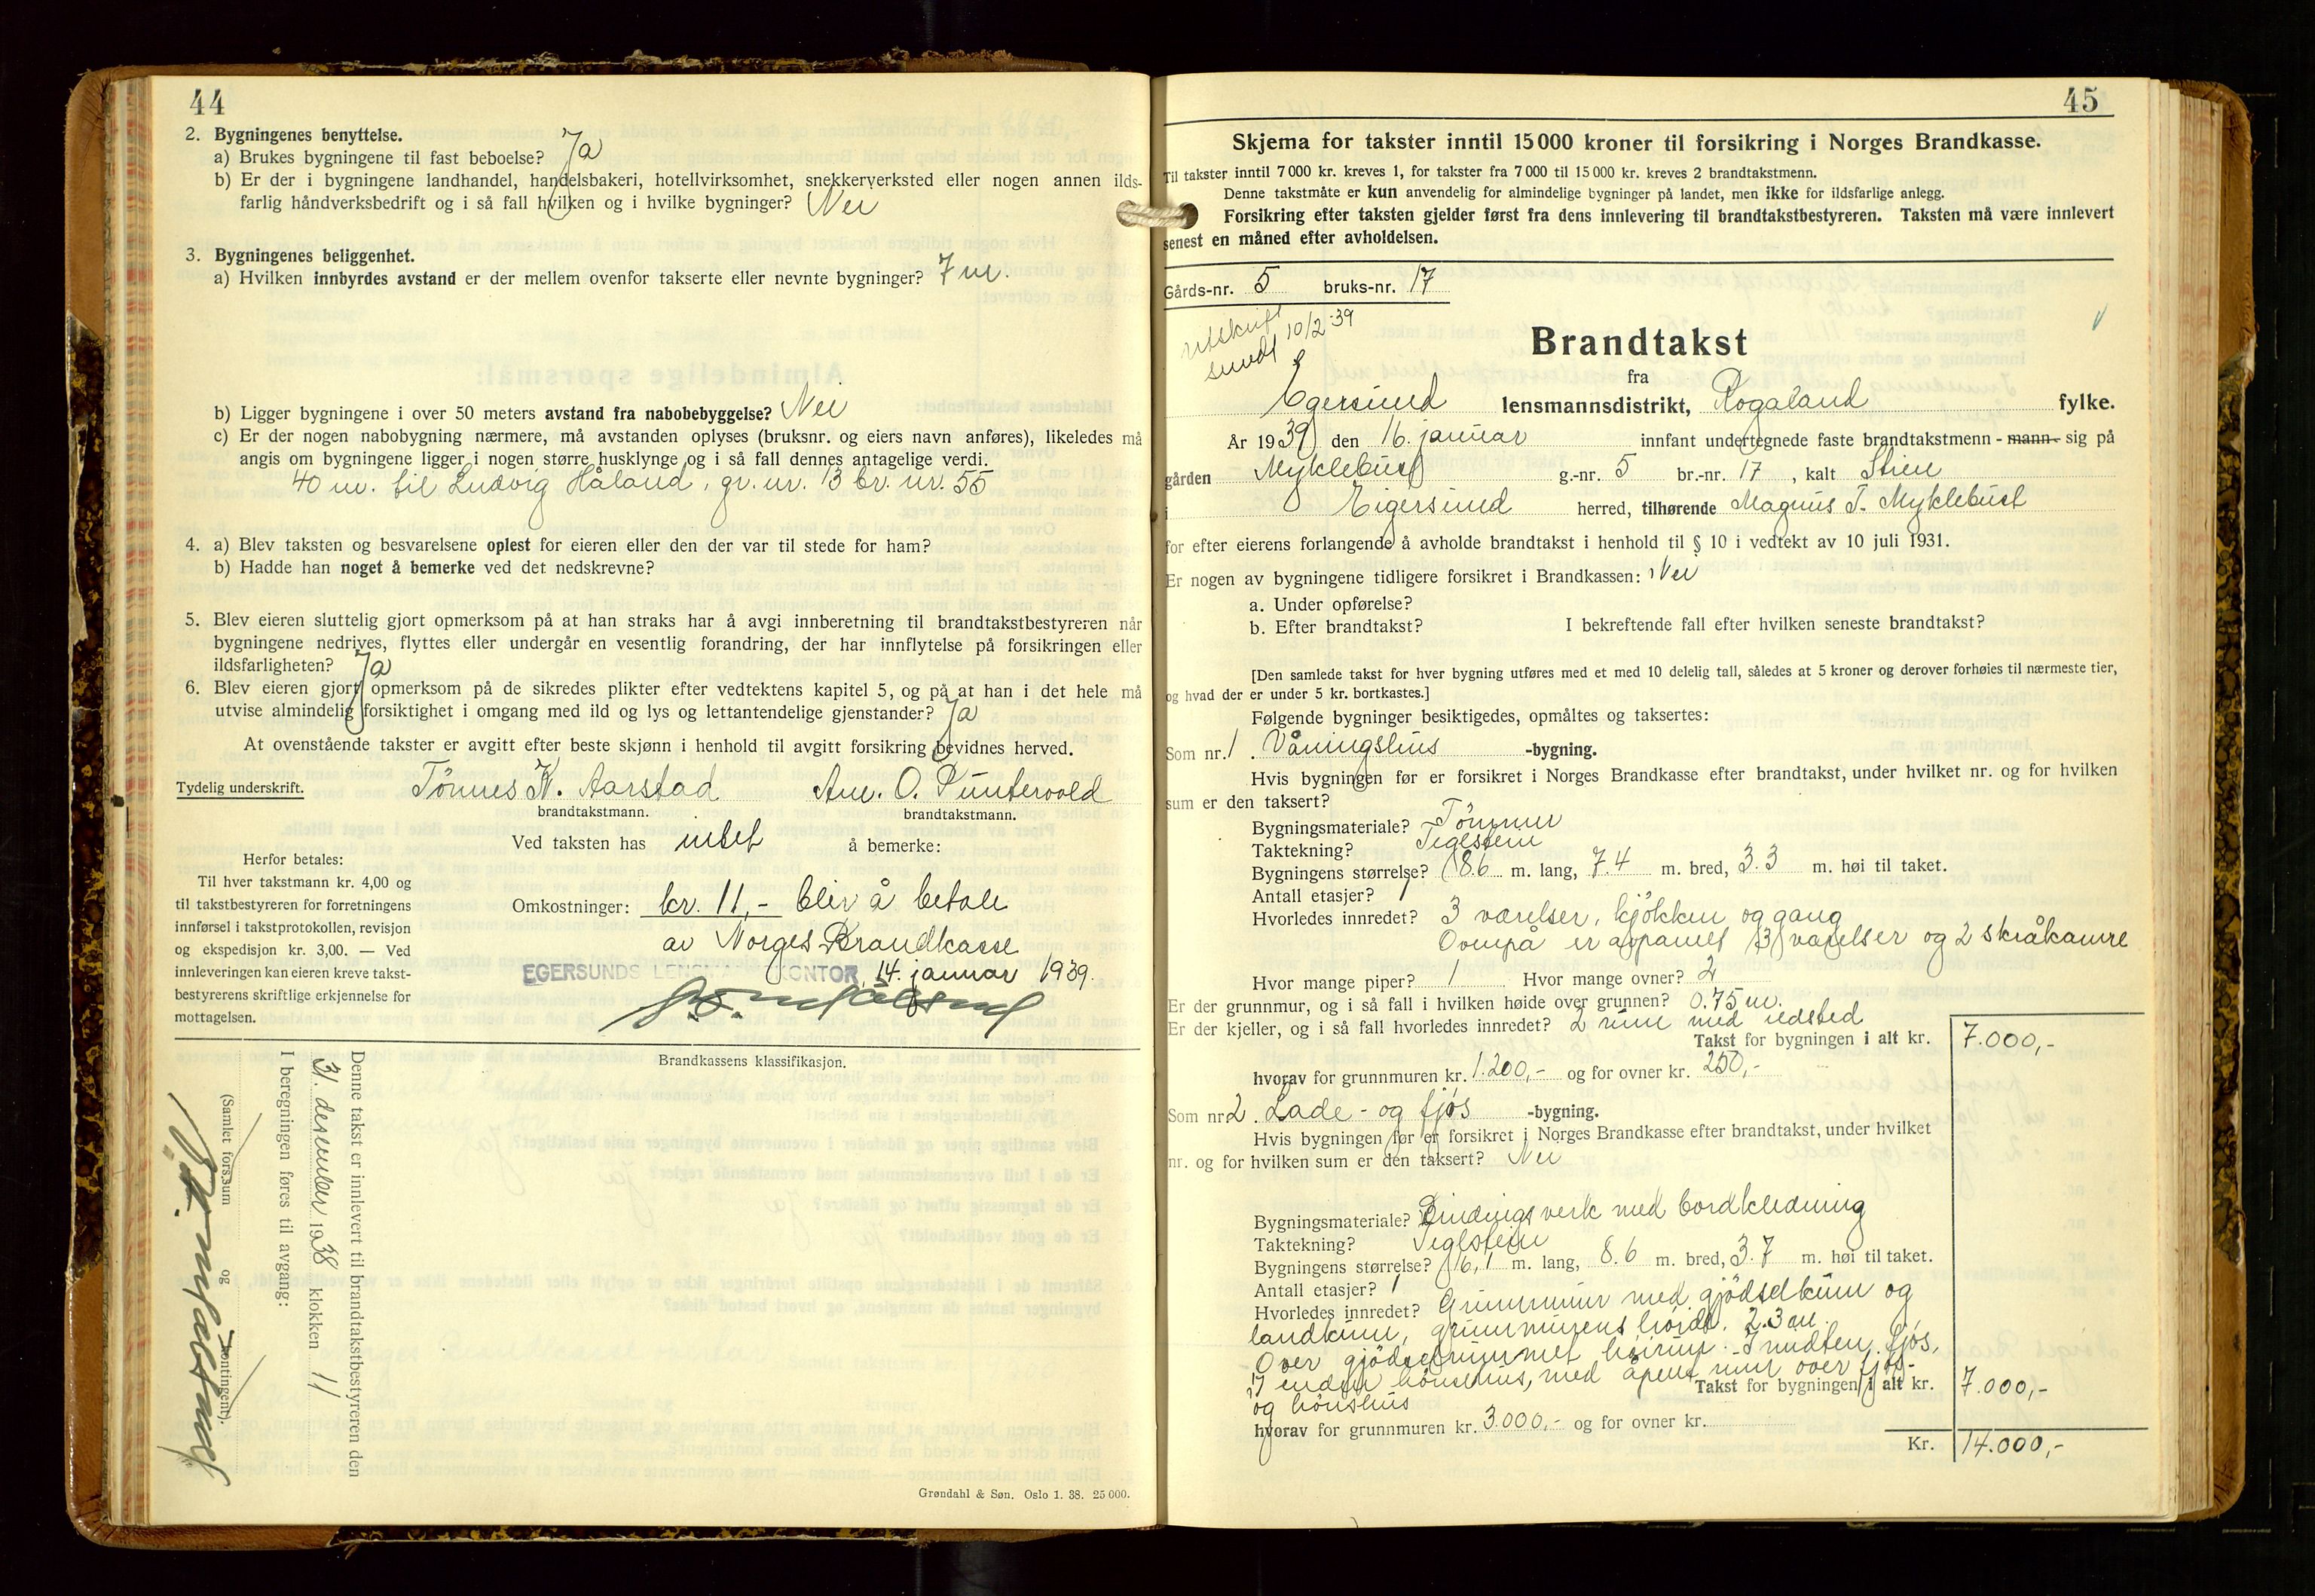 44
2. Bygningenes benyttelse.
a) Brukes bygningene til fast beboelse? Ja
b) Er der i bygningene landhandel, handelsbakeri, hotellvirksomhet, snekkerverksted eller nogen annen ilds-
farlig håndverksbedrift og i så fall hvilken og i hvilke bygninger? Nei
3. Bygningenes beliggenhet.
a) Hvilken innbyrdes avstand er der mellem ovenfor takserte eller nevnte bygninger? 7 m.
b) Ligger bygningene i over 50 meters avstand fra nabobebyggelse? Nei
c) Er der nogen nabobygning nærmere, må avstanden oplyses (bruksnr. og eiers navn anføres), likeledes må
angis om bygningene ligger i nogen større husklynge og i så fall dennes antagelige verdi.
40 m. til Ludvig Håland, gr. nr. 13 br. nr. 55
4. a) Blev taksten og besvarelsene oplest for eieren eller den der var til stede for ham?
b) Hadde han noget å bemerke ved det nedskrevne?
5. Blev eieren sluttelig gjort opmerksom på at han straks har å avgi innberetning til brandtakstbestyreren når
bygningene nedrives, flyttes eller undergår en vesentlig forandring, der har innflytelse på forsikringen eller
ildsfarligheten? Ja
6. Blev eieren gjort opmerksom på de sikredes plikter efter vedtektens kapitel 5, og på at han i det hele må
utvise almindelig forsiktighet i omgang med ild og lys og lettantendelige gjenstander? Ja
At ovenstående takster er avgitt efter beste skjønn i henhold til avgitt forsikring bevidnes herved.
Tydelig underskrift. Tönnes K. Aarstad Am. O. Puntervold
brandtakstmann. brandtakstmann.
Ved taksten has intet å bemerke:
Herfor betales:
Til hver takstmann kr. 4,00 og
til takstbestyreren for forretningens
innførsel i takstprotokollen, revisjon
og ekspedisjon kr. 3,00. — Ved
innleveringen kan eieren kreve takst-
bestyrerens skriftlige erkjennelse for
mottagelsen.
Omkostninger: kr. 11,- blir å betale
av Norges Brandkasse
EGERSUNDS LENSMANNSKONTOR, 14. januar 1939.
Brandkassens klassifikasjon.
Denne takst er innlevert til brandtakstbestyreren den
31. desember 1938 klokken 11
I beregningen føres til avgang:
(Samlet fors.sum og kontingent).
Grøndahl & Søn. Oslo 1. 38. 25 000.
45
Skjema for takster inntil 15 000 kroner til forsikring i Norges Brandkasse.
Til takster inntil 7 000 kr. kreves 1, for takster fra 7 000 til 15 000 kr. kreves 2 brandtakstmenn.
Denne takstmåte er kun anvendelig for almindelige bygninger på landet, men ikke for ildsfarlige anlegg.
Forsikring efter taksten gjelder først fra dens innlevering til brandtakstbestyreren. Taksten må være innlevert
senest en måned efter avholdelsen.
Gårds-nr. 5 bruks-nr. 17
utskrift
sendt 10/2-39
Brandtakst
fra
Egersund lensmannsdistrikt, Rogaland fylke.
År 1939 den 16. januar innfant undertegnede faste brandtakstmenn - mann - sig på
gården Myklebust g.-nr. 5 br.-nr. 17, kalt Stien
i Eigersund herred, tilhørende Magnus T. Myklebust
for efter eierens forlangende å avholde brandtakst i henhold til § 10 i vedtekt av 10 juli 1931.
Er nogen av bygningene tidligere forsikret i Brandkassen: Nei
a. Under opførelse?
b. Efter brandtakst? I bekreftende fall efter hvilken seneste brandtakst?
[Den samlede takst for hver bygning utføres med et med 10 delelig tall, således at 5 kroner og derover forhøies til nærmeste tier,
og hvad der er under 5 kr. bortkastes.]
Følgende bygninger besiktigedes, opmåltes og taksertes:
Som nr. 1. Våningshus -bygning.
Hvis bygningen før er forsikret i Norges Brandkasse efter brandtakst, under hvilket nr. og for hvilken
sum er den taksert?
Bygningsmateriale? Tömmer
Taktekning? Teglstein
Bygningens størrelse? 8.6 m. lang, 7.4 m. bred, 3.3 m. høi til taket.
Antall etasjer? 1
Hvorledes innredet? 3 værelser, kjökken og gang
Ovenpå er avpanelt 3 værelser og 2 skråkamre
Hvor mange piper? 1 Hvor mange ovner? 2
Er der grunnmur, og i så fall i hvilken høide over grunnen? 0.75 m.
Er der kjeller, og i så fall hvorledes innredet? 2 rum med ildsted
Takst for bygningen i alt kr. 7.000,-
hvorav for grunnmuren kr. 1.200,- og for ovner kr. 250,-
Som nr. 2. Lade- og fjös -bygning.
Hvis bygningen før er forsikret i Norges Brandkasse efter brandtakst, under hvilket
nr. og for hvilken sum er den taksert? Nei
Bygningsmateriale? Bindingsverk med bordkledning
Taktekning? Teglstein
Bygningens størrelse? 16,1 m. lang, 8.6 m. bred, 3.7 m. høi til taket.
Antall etasjer? 1
Hvorledes innredet? Grunnmur med gjödselkum og
landkum, grunnmurens höide 2.3 m.
Over gjödselrummet höirum. I midten fjös,
I enden hönsehus, med åpent rum over fjös-
og hönshus
Takst for bygningen i alt kr. 7.000,-
hvorav for grunnmuren kr. 3.000,- og for ovner kr.
Kr. 14.000,-